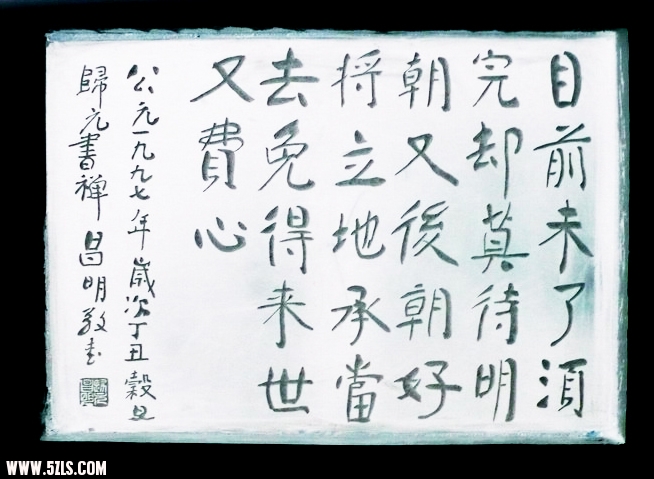 目前未了湏
完却莫待明
朝又後朝好
将立地承當
去免得来世
又費心
公元一九九七年歲次丁丑穀旦
歸元書禅 昌明敬書
WWW.5ZLS.COM